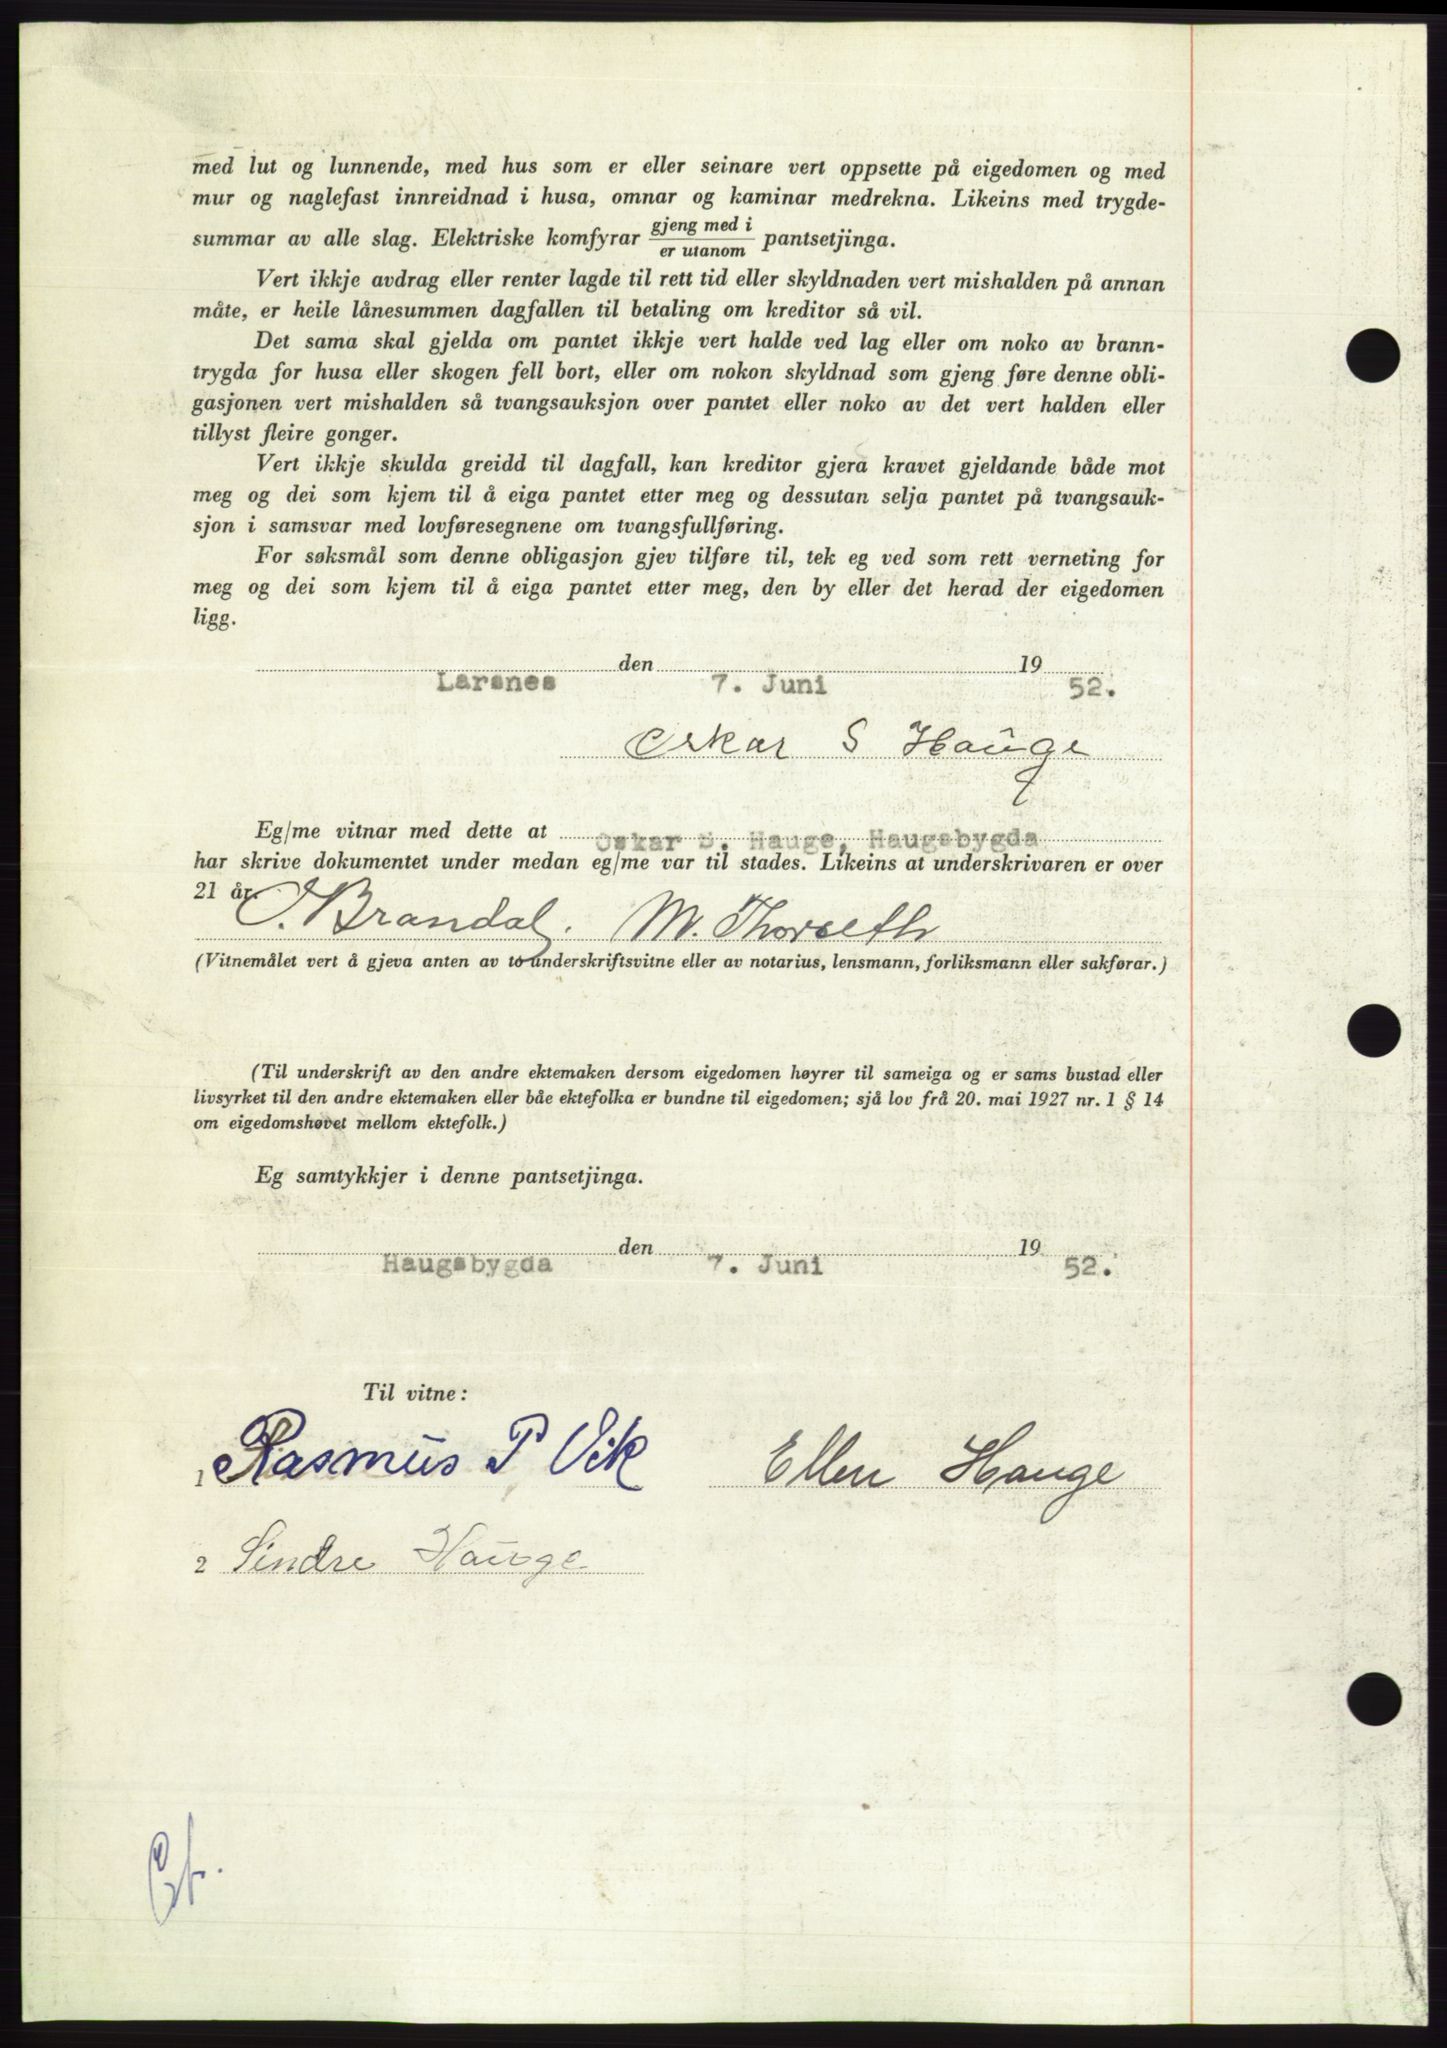 med lut og lunnende, med hus som er eller seinare vert oppsette på eigedomen og med
mur og naglefast innreidnad i husa, omnar og kaminar medrekna. Likeins med trygde-
summar av alle slag. Elektriske komfyrar gjeng med i / er utanom pantsetjinga.
Vert ikkje avdrag eller renter lagde til rett tid eller skyldnaden vert mishalden på annan
måte, er heile lånesummen dagfallen til betaling om kreditor så vil.
Det sama skal gjelda om pantet ikkje vert halde ved lag eller om noko av brann-
trygda for husa eller skogen fell bort, eller om nokon skyldnad som gjeng føre denne obli-
gasjonen vert mishalden så tvangsauksjon over pantet eller noko av det vert halden eller
tillyst fleire gonger.
Vert ikkje skulda greidd til dagfall, kan kreditor gjera kravet gjeldande både mot
meg og dei som kjem til å eiga pantet etter meg og dessutan selja pantet på tvangsauk-
sjon i samsvar med lovføresegnene om tvangsfullføring.
For søksmål som denne obligasjon gjev tilføre til, tek eg ved som rett verneting for
meg og dei som kjem til å eiga pantet etter meg, den by eller det herad der eigedomen
ligg.
Larsnes den 7. Juni 19 52.
Oskar S Hauge
Eg/me vitnar med dette at Oskar S. Hauge, Haugsbygda
har skrive dokumentet under medan eg/me var til stades. Likeins at underskrivaren er over
21 år.
Brandal. M. Thorseth
(Vitnemålet vert å gjeva anten av to underskriftsvitne eller av notarius, lensmann, forliksmann eller sakførar.)
(Til underskrift av den andre ektemaken dersom eigedomen høyrer til sameiga og er sams bustad eller
livsyrket til den andre ektemaken eller båe ektefolka er bundne til eigedomen; sjå lov frå 20. mai 1927 nr. 1 § 14
om eigedomshøvet mellom ektefolk.)
Eg samtykkjer i denne pantsetjinga.
Haugsbygda den 7. Juni 19 52.
Til vitne:
1 Rasmus P Vik Ellen Hauge
2 Sindre Hauge